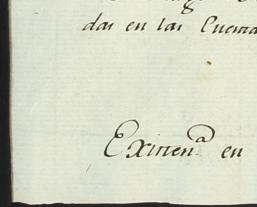 das en las Cuenta
Existen.ª en